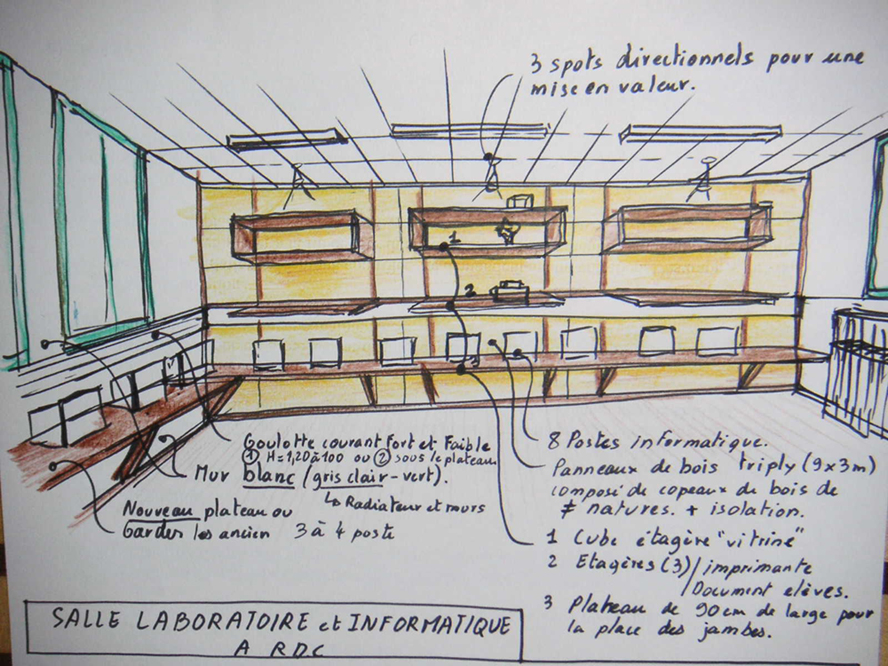 3 spots directionnels pour une
mise en valeur.
1
2
3
Goulotte courant fort et Faible
① H=1,20 à 100 ou ② sous le plateau
Mur blanc (gris clair-vert).
↳ Radiateur et murs
Nouveau plateau ou
Garder les ancien 3 à 4 poste
8 Postes informatique.
Panneaux de bois triply (9x3m)
composé de copeaux de bois de
≠ natures. + isolation.
1 Cube étagère "vitrine"
2 Etagères (3)/imprimante
/Document elèves.
3 Plateau de 90cm de large pour
la place des jambes.
SALLE LABORATOIRE et INFORMATIQUE
A RDC